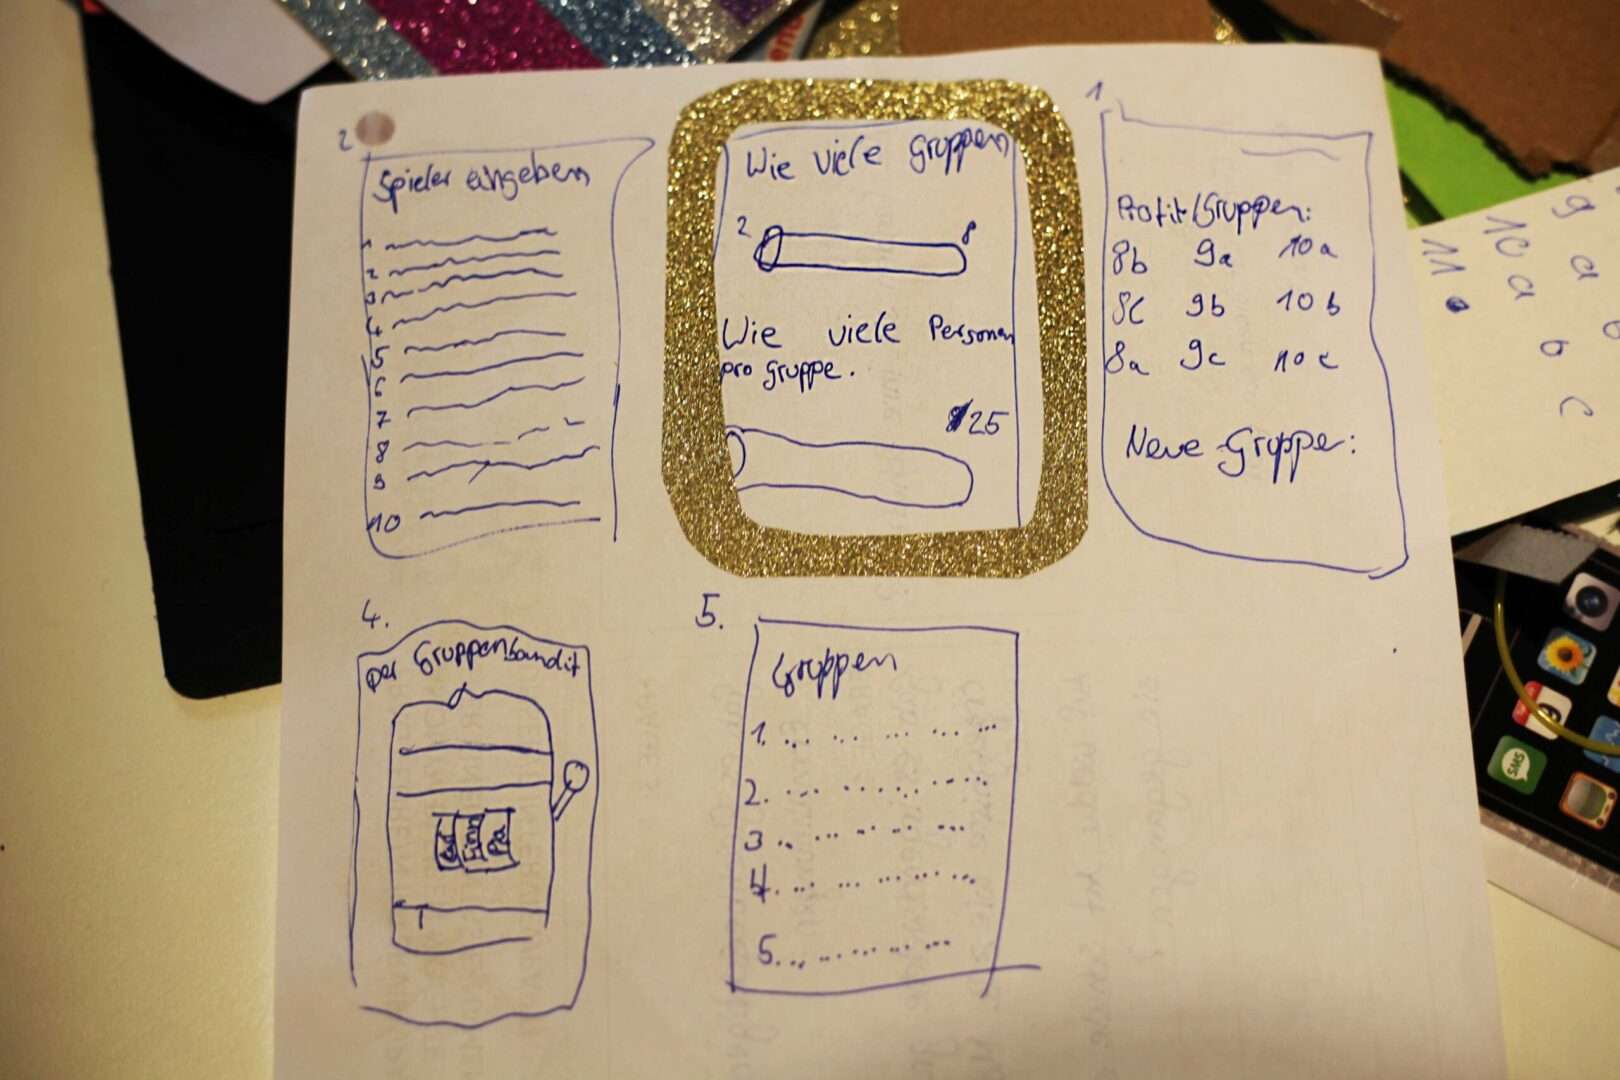 2
Spieler eingeben
1
2
3
4
5
6
7
8
9
10
Wie viele Gruppen
2 8
Wie viele Personen
pro Gruppe.
25
1
Profil/Gruppen:
8b 9a 10a
8c 9b 10b
8a 9c 10c
Neue Gruppe:
4.
Der Gruppenbandit
Finn
5.
Gruppen
1.
2.
3
4.
5.
9
a
b
c
10
a
11
SMS